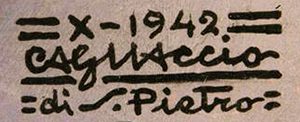 = X - 1942 =
CAGNACCIO
= di S. Pietro =